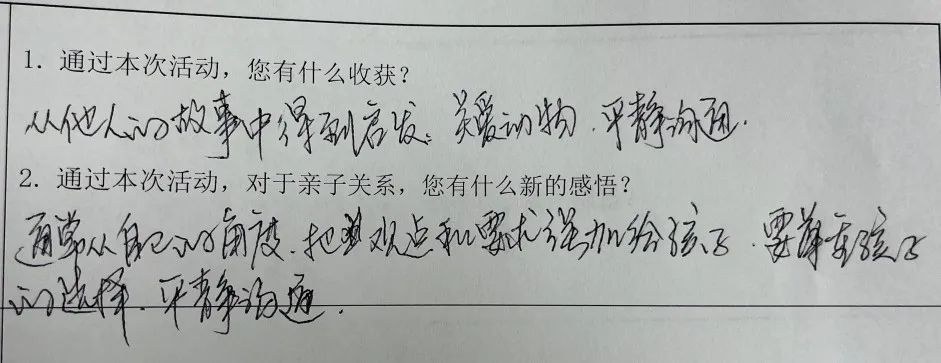 1. 通过本次活动，您有什么收获？
从他人的故事中得到启发：关爱动物.平静沟通.
2. 通过本次活动，对于亲子关系，您有什么新的感悟？
通常从自己的角度.把观点和要求强加给孩子.要尊重孩子
的选择.平静沟通.